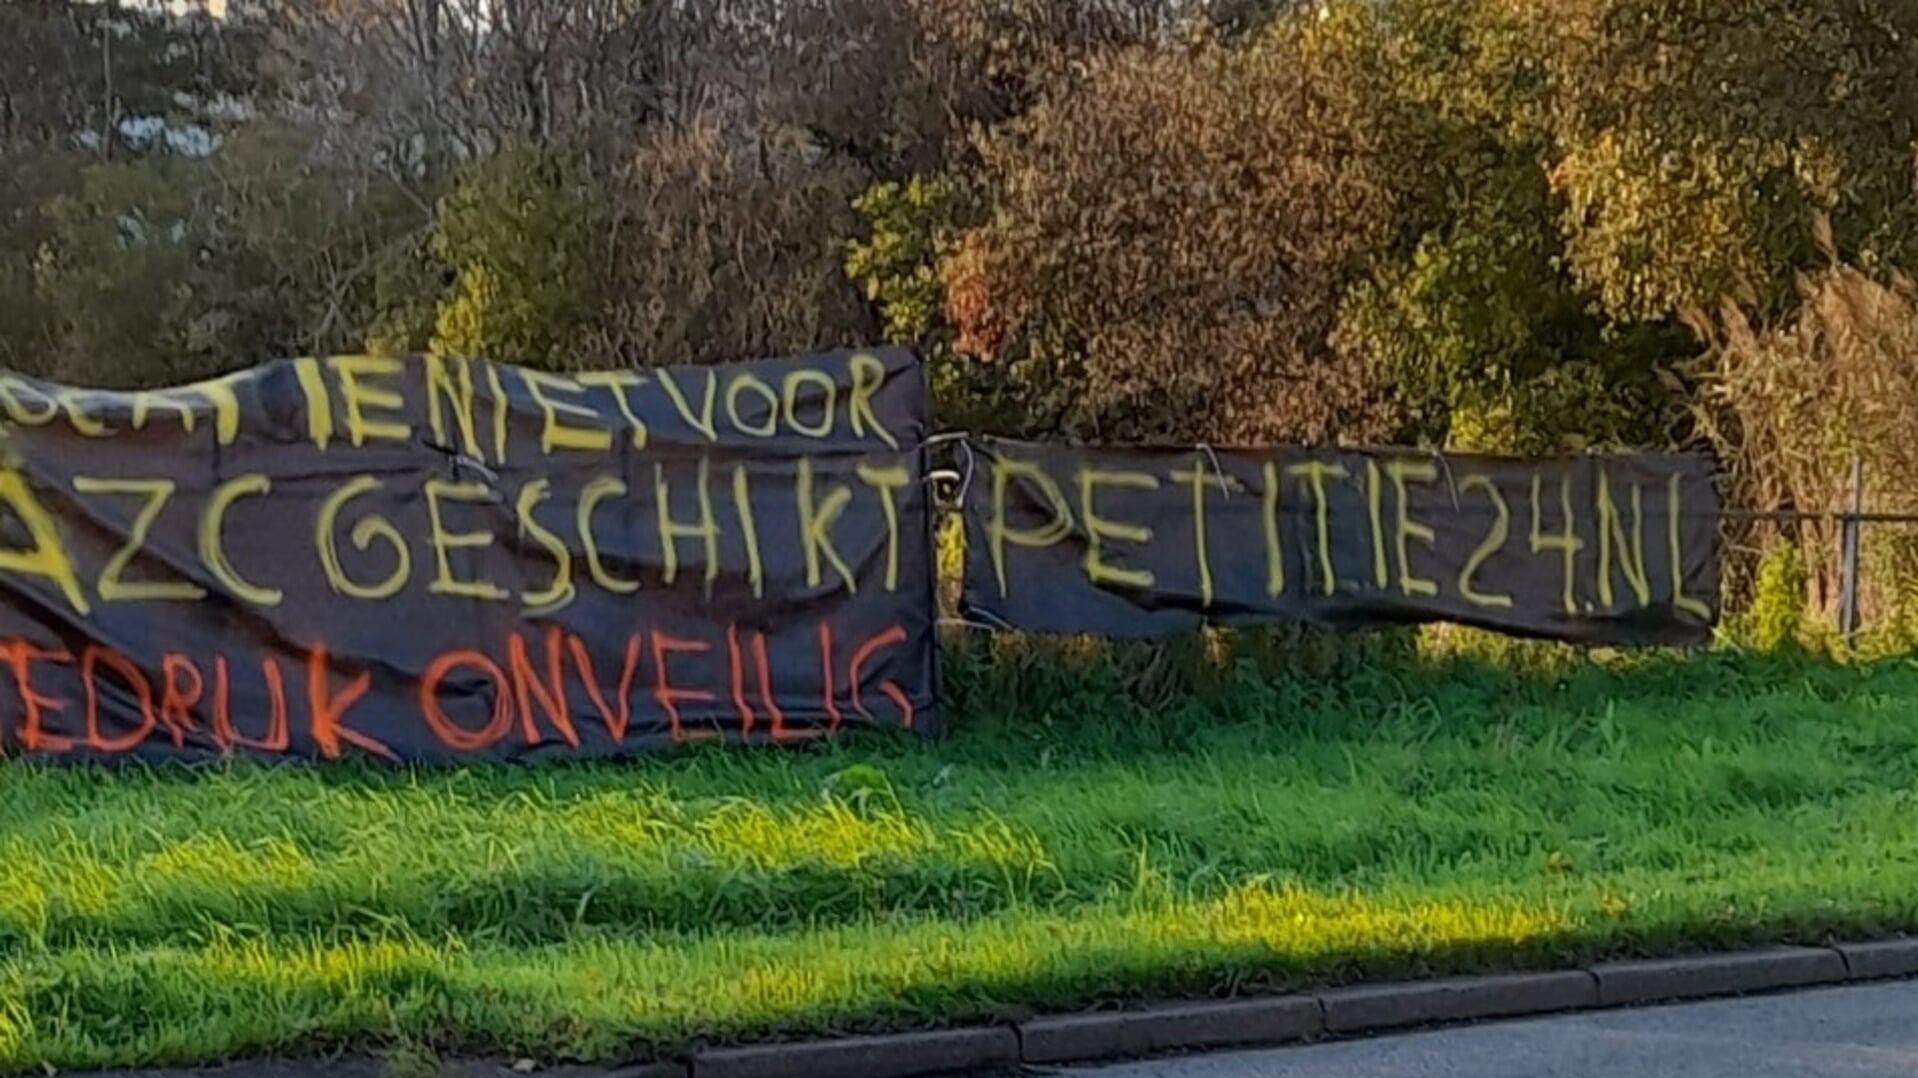 LOCATIE NIET VOOR
AZC GESCHIKT
TE DRUK ONVEILIG
PETITIE24.NL